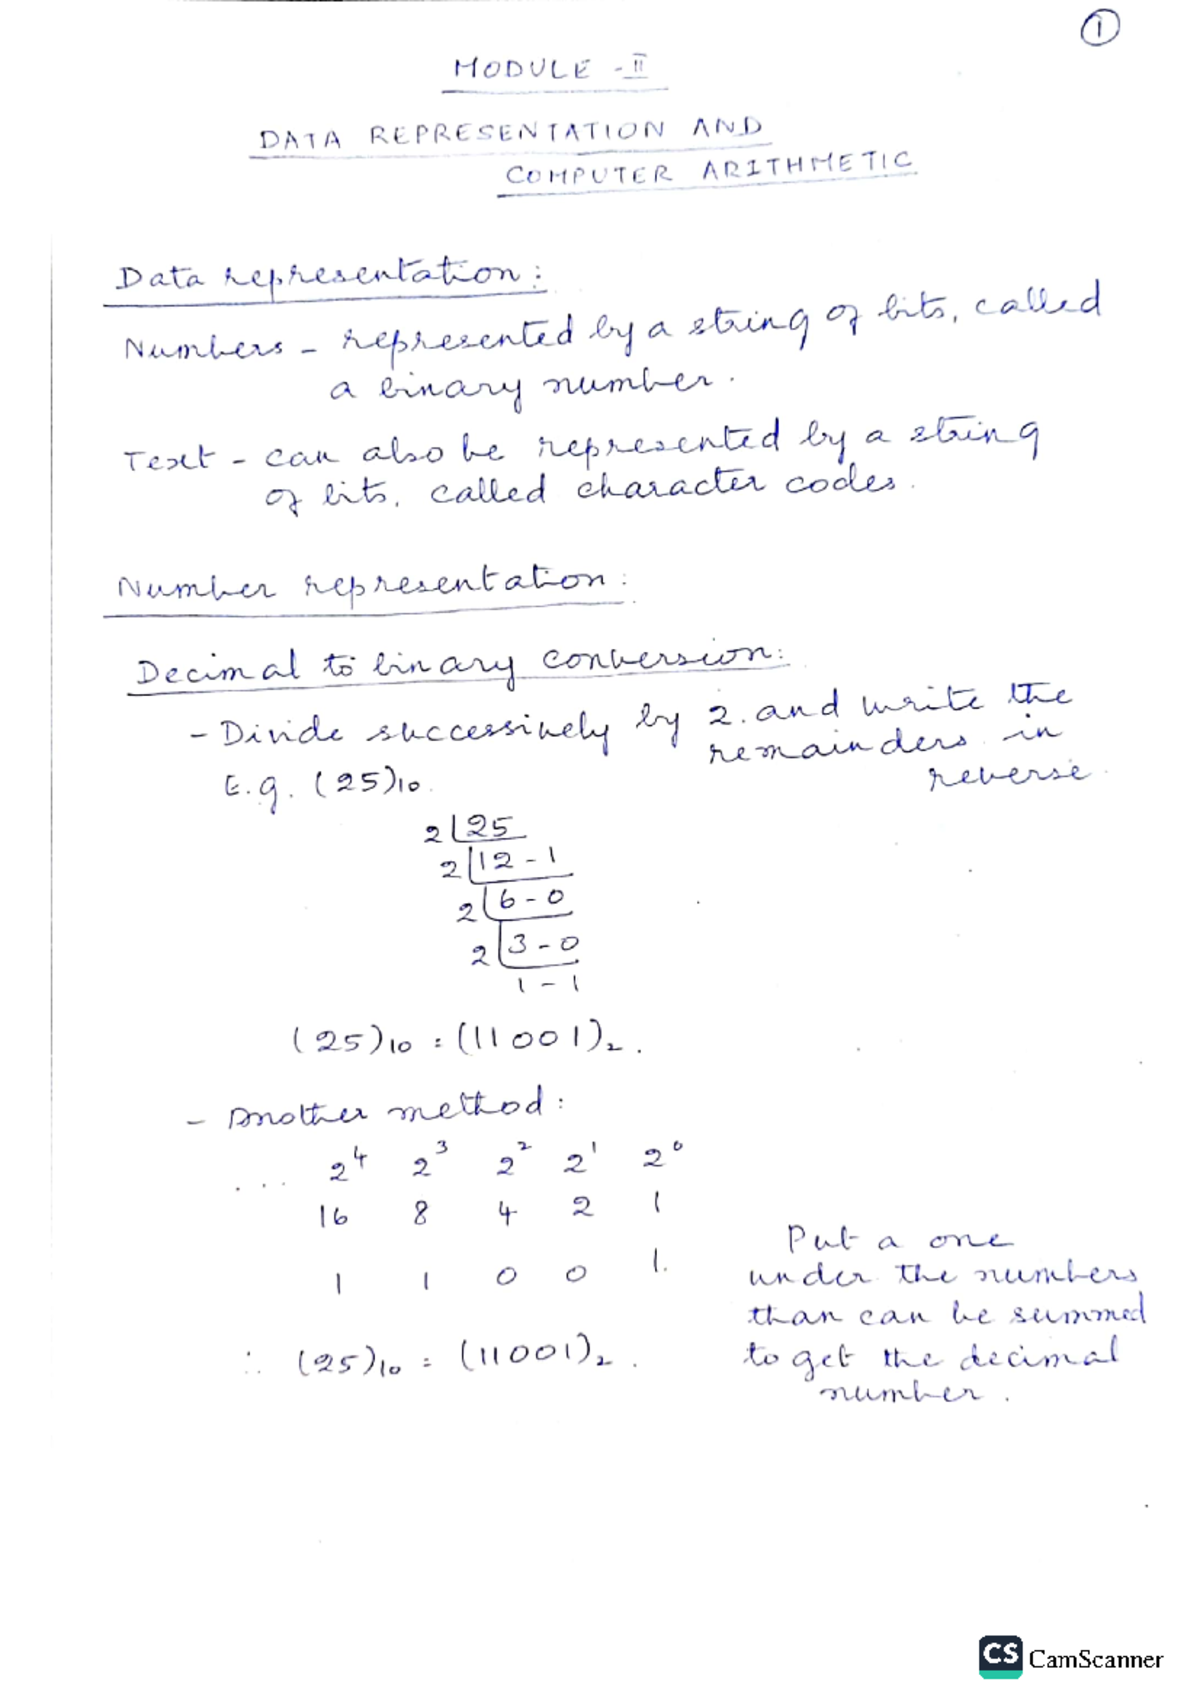 1
MODULE - II
DATA REPRESENTATION AND
COMPUTER ARITHMETIC
Data representation :
Numbers - represented by a string of bits, called
a binary number.
Text - can also be represented by a string
of bits, called character codes.
Number representation :
Decimal to binary conversion :
- Divide successively by 2. and write the
remainders in
reverse.
E.g. (25)₁₀.
2 | 25
2 | 12 - 1
2 | 6 - 0
2 | 3 - 0
1 - 1
(25)₁₀ = (11001)₂.
- Another method :
... 2⁴ 2³ 2² 2¹ 2⁰
16 8 4 2 1
1 1 0 0 1.
Put a one
under the numbers
than can be summed
to get the decimal
number.
∴ (25)₁₀ = (11001)₂.
CS CamScanner